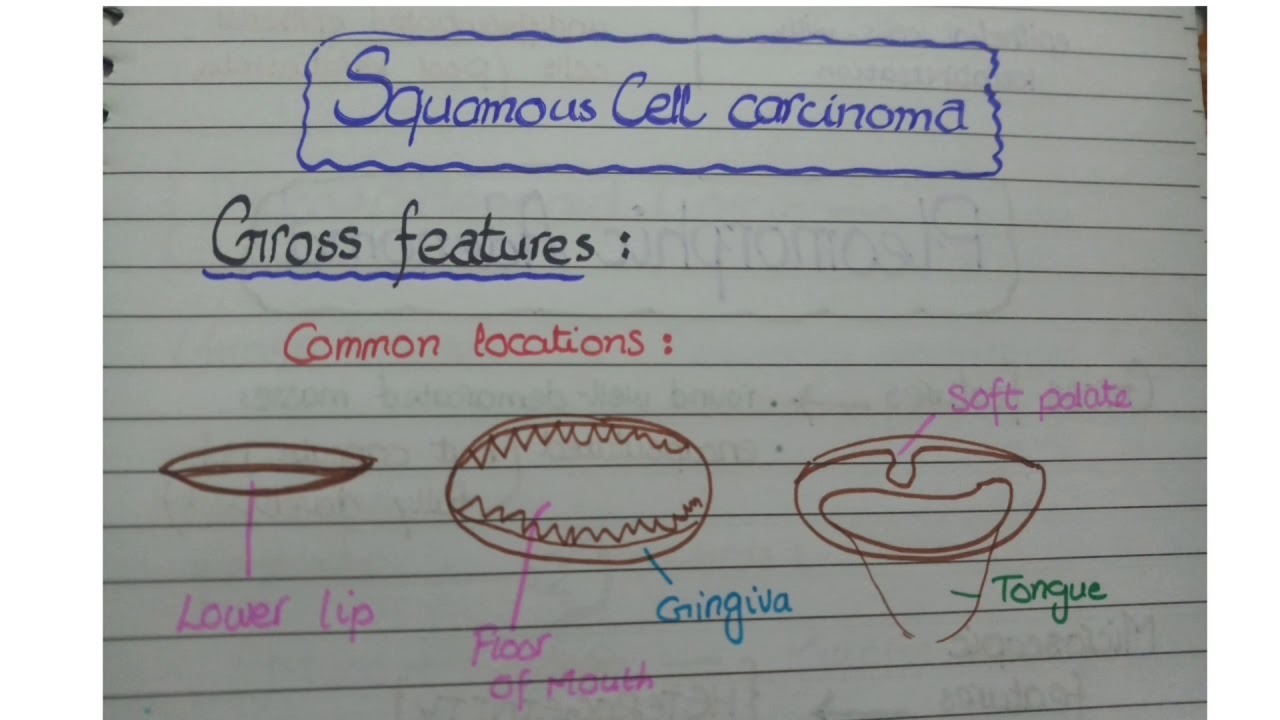 Squamous Cell carcinoma
Gross features:
Common locations:
Soft palate
Lower lip
Floor
of Mouth
Gingiva
Tongue